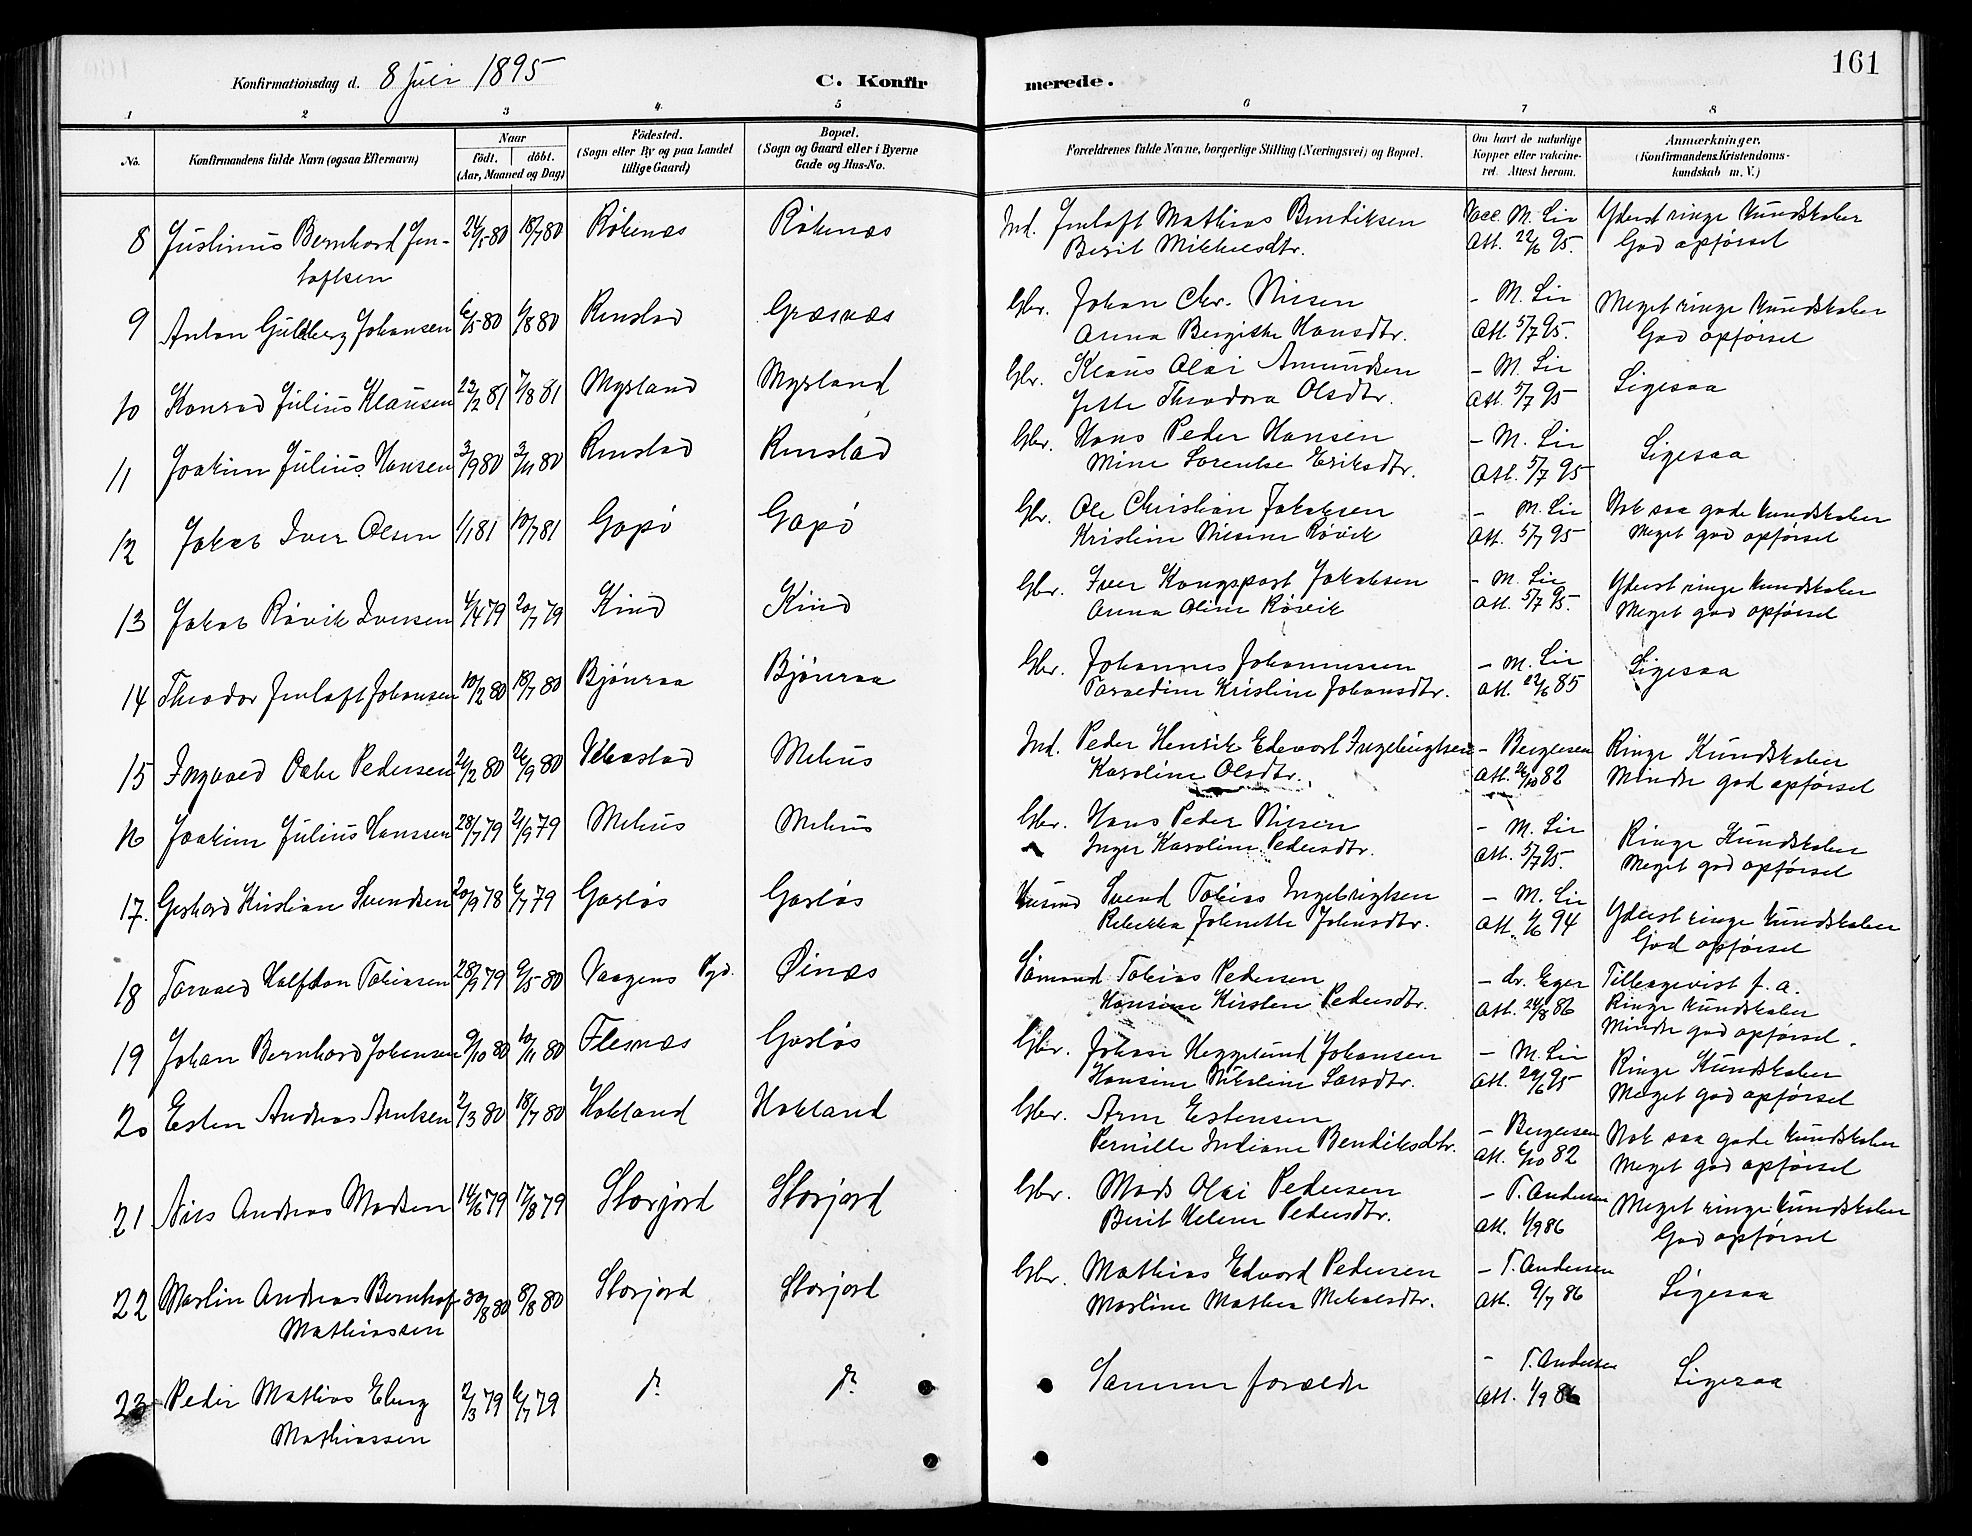 161
Konfirmationsdag d. 8 Juli 1895 C. Konfirmerede.
1 2 3 4 5 6 7 8
No. Konfirmandens fulde Navn (ogsaa Efternavn) Naar født. døbt. (Aar, Maaned og Dag) Födested. (Sogn eller By og paa Landet tillige Gaard) Bopæl. (Sogn og Gaard eller i Byerne Gade og Hus-No. Forældrenes fulde Navne, borgerlige Stilling (Næringsvei) og Bopæl. Om havt de naturlige Kopper eller vakcineret. Attest herom. Anmærkninger. (Konfirmandens Kristendomskundskab m. V.)
8 Justinus Bernhard Jentoftsen 18/7 80 Røkenæs Røkenæs Ind. Jentoft Mathias Bendiksen Vacc. M. Lie Yderst ringe Kundskaber
Berit Mikkelsdtr. Att. 22/6 95. God opførsel
9 Anton Guldberg Johansen 6/5 80 1/8 80 Renstad Græsnæs Gbr. Johan Chr. Nilsen - M. Lie Meget ringe Kundskaber
Anna Bergithe Hansdtr. Att. 5/7 95. God opførsel
10 Konrad Julius Klausen 23/2 81 7/8 81 Myrland Myrland Gbr. Klaus Olai Amundsen - M. Lie Ligesaa
Jette Theodora Olsdtr. Att. 5/7 95
11 Joakim Julius Hansen 3/9 80 3/11 80 Renstad Renstad Gbr. Hans Peder Hansen - M. Lie Ligesaa
Mine Lorentse Eriksdtr. Att. 5/7 95
12 Jakob Iver Olsen 1/1 81 10/7 81 Gapø Gapø Gbr. Ole Christian Jakobsen - M. Lie Nok saa gode Kundskaber
Kristine Nilsine Røvik Att. 5/7 95 Meget god opførsel
13 Jakob Røvik Iversen 4/4 79 20/7 79 Kind Kind Gbr. Iver Kongspart Jakobsen - M. Lie Yderst ringe Kundskaber
Anna Oline Røvik Att. 5/7 95. Meget god opførsel
14 Theodor Jentoft Johansen 10/2 80 18/7 80 Bjønraa Bjønraa Gbr. Johannes Johannessen - M. Lie Ligesaa
Kristine Johansdtr. Att. 22/6 85
15 Ingvald Pedersen 26/9 80 Melhus Ind. Peder Henrik Edevart Ingebrigtsen - Bergersen Ringe Kundskaber
Karoline Olsdtr. Att. 26/10 82 Mindre god opførsel
16 Joakim Julius Hanssen 28/7 79 21/9 79 Melhus Melhus Gbr. Hans Peder Nilsen - M. Lie Ringe Kundskaber
Inger Karoline Pedersdtr. Att. 5/7 95. Meget god opførsel
17. Gerhard Kristian Svendsen 20/9 78 6/7 79 Gasløs Gasløs Husmd Svend Tobias Ingebrigtsen - M. Lie Yderst ringe Kundskaber
Rebekka Johnette Johnsdtr. Att. 94 God opførsel
18 Torvald Halfdan Tobiasen 28/9 79 9/5 80 Vaagens Pgd. Øinæs Sømand Tobias Pedersen - dr. Eger Tillagevist f. a.
Hansine Kirsten Pedersdtr. Att. 24/8 86 Ringe Kundskaber
Mindre god opførsel.
19 Johan Bernhard Johansen 9/10 80 10/11 80 Flesnæs Gasløs Gbr. Johan Heggelund Johansen - M. Lie Ringe Kundskaber
Hansine Nikoline Larsdtr. Att. 29/6 95 Meget god opførsel
20 Esten Andreas Arntsen 2/3 80 18/7 80 Hokland Hokland Gbr. Arne Estensen - Bergersen Nok saa gode Kundskaber
Pernille Indiane Bendiksdtr. Att. 6/10 82 Meget god opførsel
21 Nils Andreas Madsen 14/6 79 17/8 79 Storjord Storjord Gbr. Mads Olai Pedersen - T. Andersen Meget ringe Kundskaber
Berit Helene Pedersdtr. Att. 1/9 86 God opførsel
22 Martin Andreas Bernhof Mathiassen 8/8 80 Storjord Storjord Gbr. Mathias Edvard Pedersen - T. Andersen Ligesaa
Martine Mathea Mikalsdtr. Att. 9/7 86
23 Peder Mathias Eberg Mathiassen 2/3 79 6/7 79 Samme forældre - T. Andersen Ligesaa
Att. 1/9 86